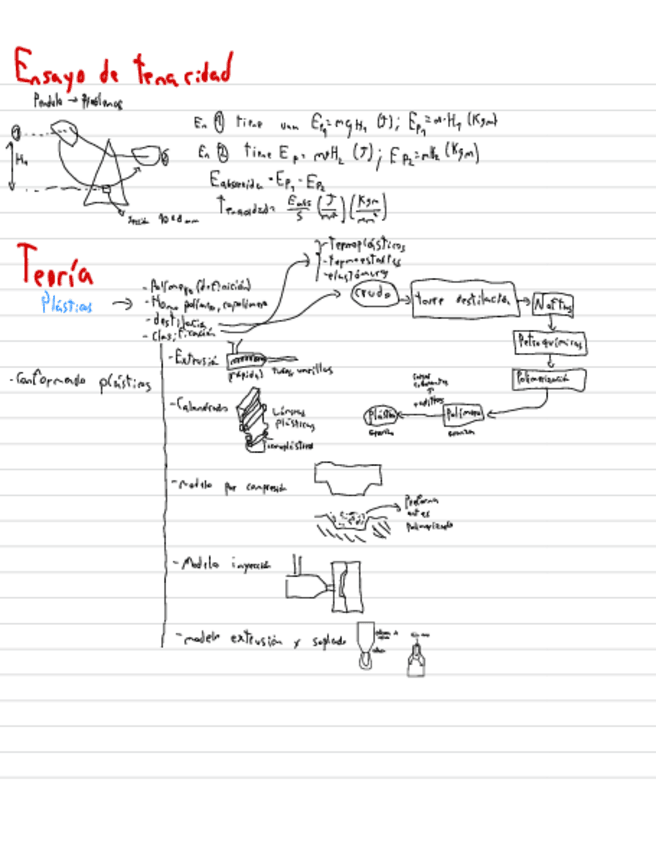 Ensayo de tenacidad
Pendulo → Problemas
En ① tiene una Ep₁=mgH₁ (J); Ep₁=m·H₁ (Kgm)
H₁
En ② tiene Ep₂ mgH₂ (J); Ep₂=mH₂ (Kgm)
Eabsorvida = Ep₁ - Ep₂
Tenacidad = Eabs/S (J/m²) (Kgm/mm²)
Teoría
Plásticos →
- Polímero (definición)
- Homopolímero, copolímero
- destilación
- Clasificación
- Termoplásticos
- termoestables
- elastómeros
Crudo
torre destilación
Naftas
Petroquímicas
Polimerización
Polímero
Plástico
aditivos
- Conformando plásticos
- Extrusión
(rápida) tubos varillas
- Calandrado
Láminas
plásticas
termoplásticos
- modelo por compresión
Preforma
antes
polimerizado
- Modelo inyección
- modelo extrusión y soplado